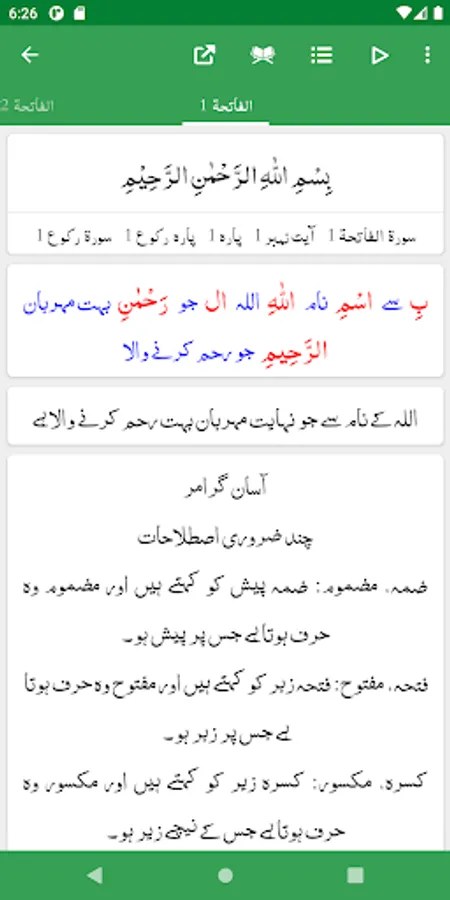 6:26
الفاتحة 1
الفاتحة 2
بِسْمِ اللّٰهِ الرَّحْمٰنِ الرَّحِيْمِ
سورۃ الفاتحة 1 آیت نمبر 1 پارہ 1 پارہ رکوع 1 سورۃ رکوع 1
بِ سے اسْمِ نام اللّٰهِ اللہ ال جو رَحْمٰنِ بہت مہربان
الرَّحِيمِ جو رحم کرنے والا
اللہ کے نام سے جو نہایت مہربان بہت رحم کرنے والا ہے
آسان گرامر
چند ضروری اصطلاحات
ضمہ، مضموم: ضمہ پیش کو کہتے ہیں اور مضموم وہ
حرف ہوتا ہے جس پر پیش ہو۔
فتحہ، مفتوح: فتحہ زبر کو کہتے ہیں اور مفتوح وہ حرف ہوتا
ہے جس پر زبر ہو۔
کسرہ، مکسور: کسرہ زیر کو کہتے ہیں اور مکسور وہ
حرف ہوتا ہے جس کے نیچے زیر ہو۔